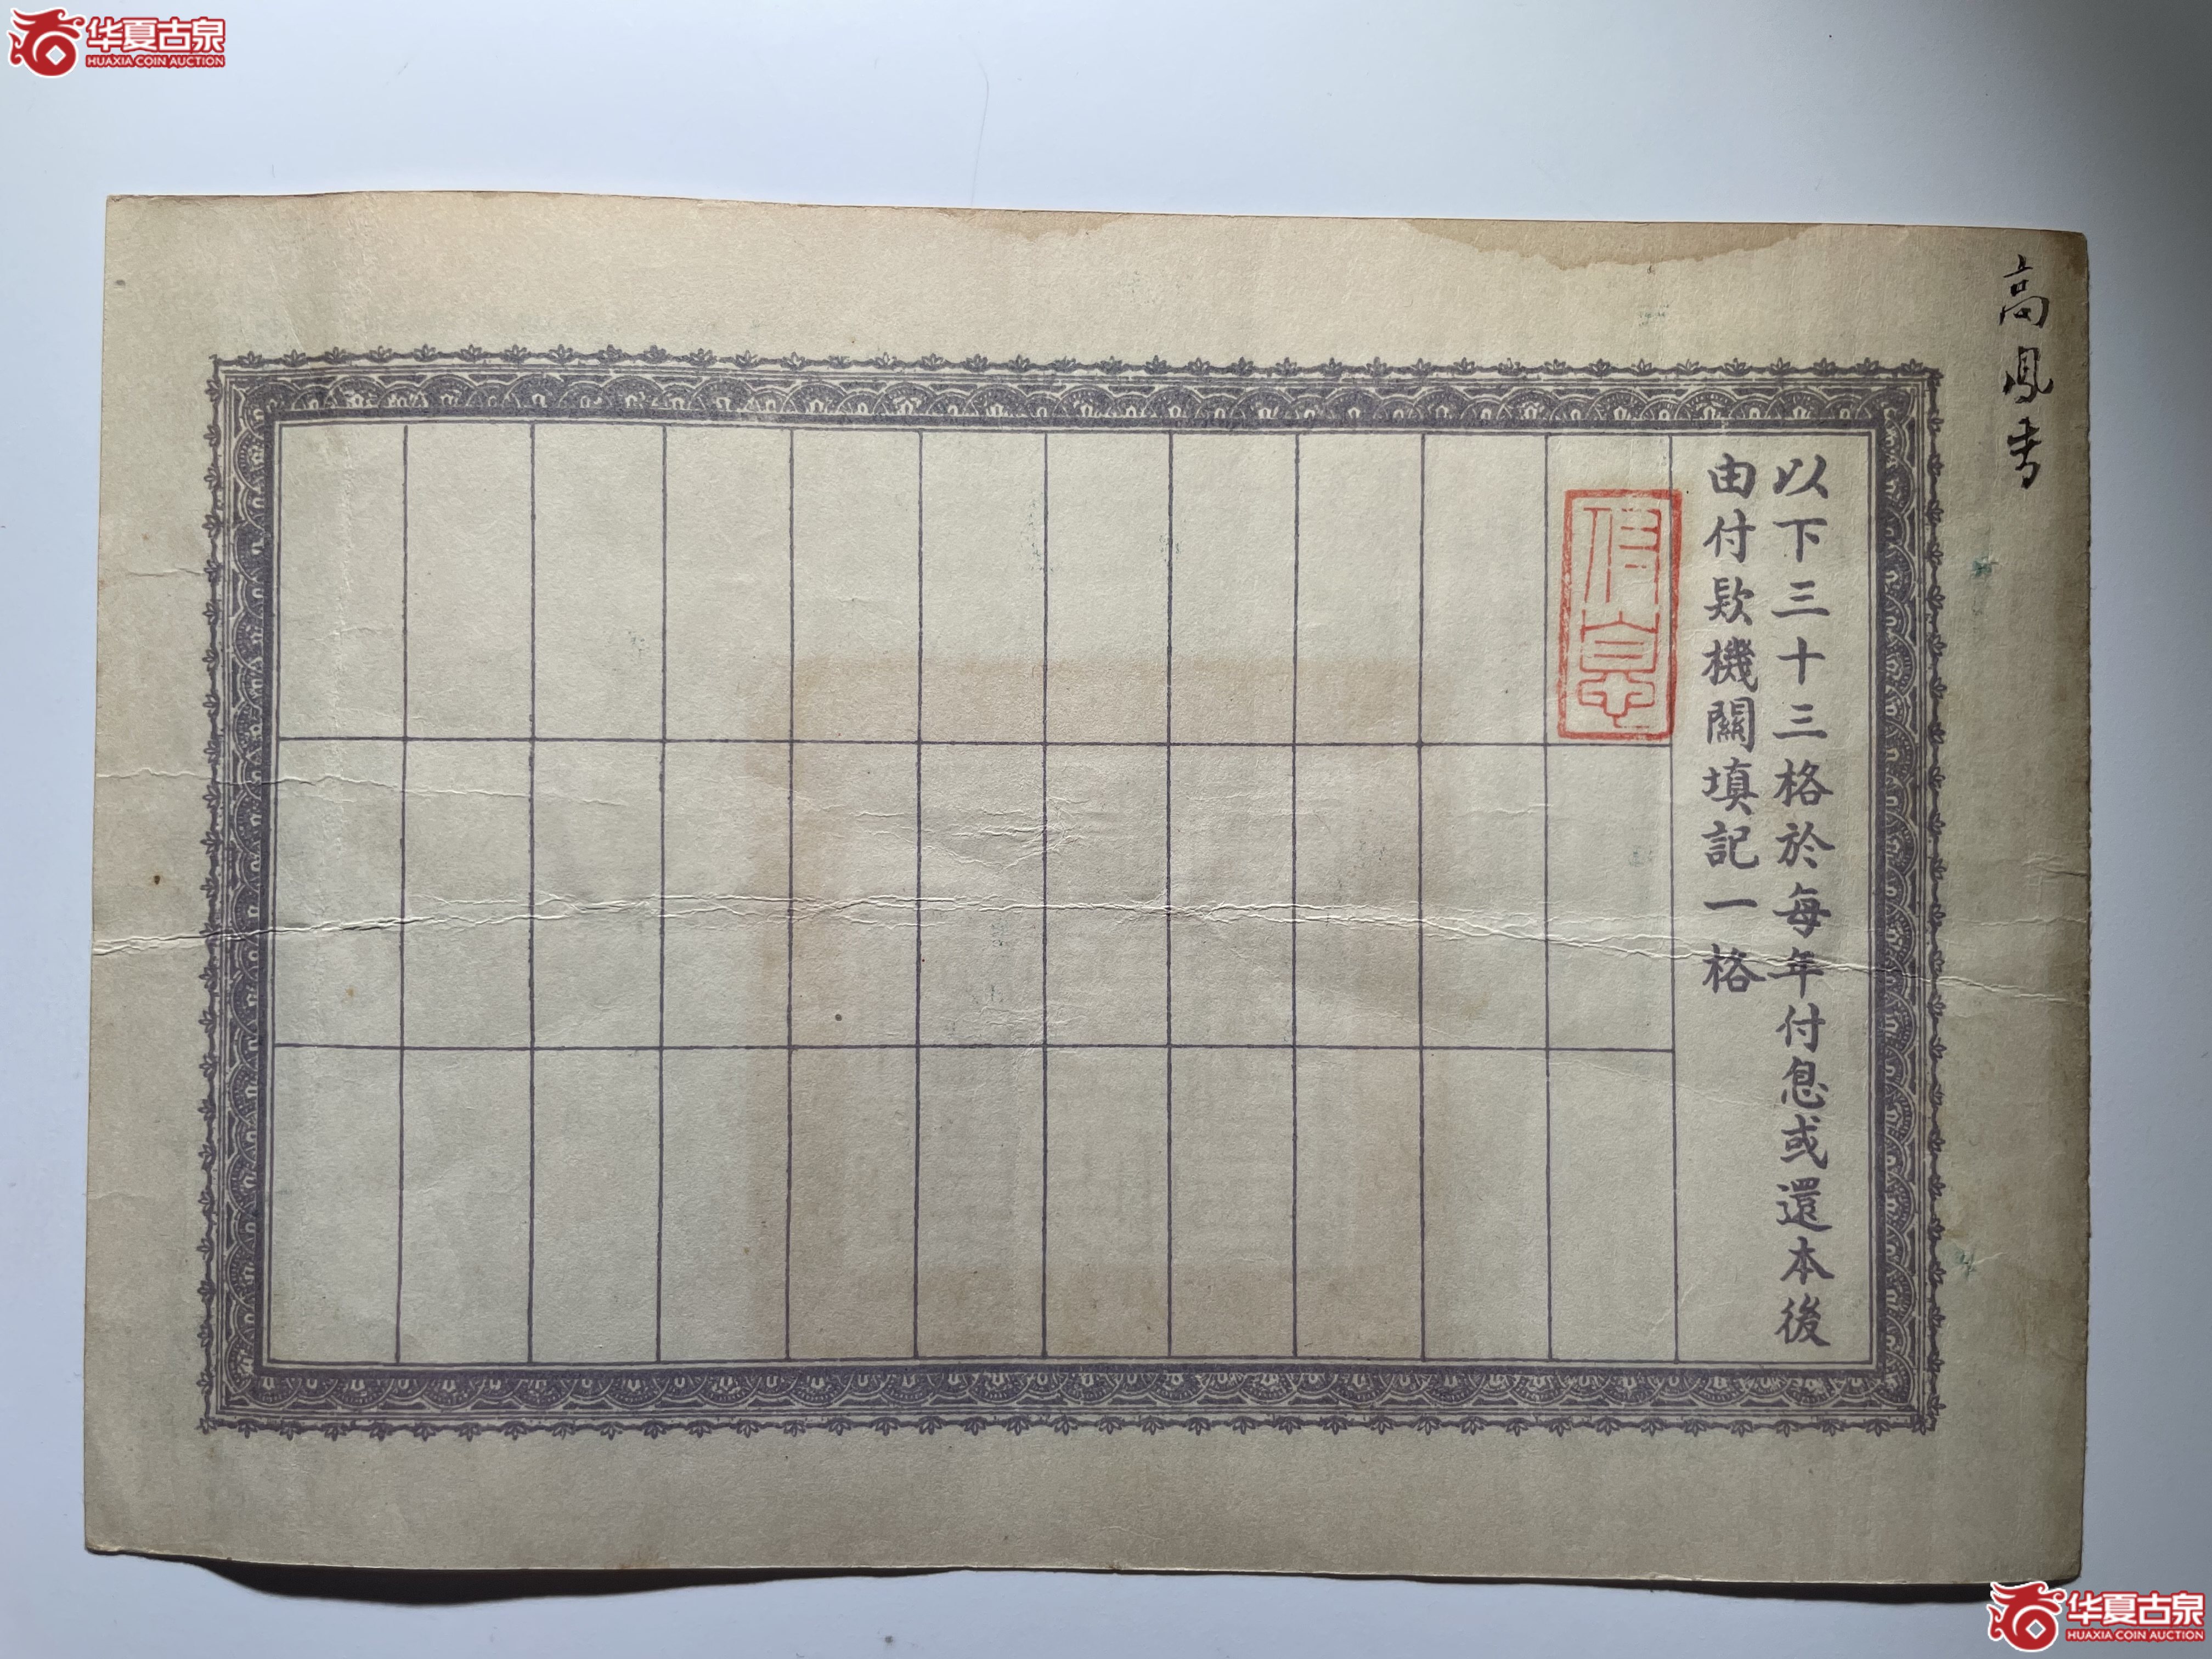 华夏古泉
HUAXIA COIN AUCTION
高鳳書
以下三十三格於每年付息或還本後
由付欵機關填記一格
付息
华夏古泉
HUAXIA COIN AUCTION